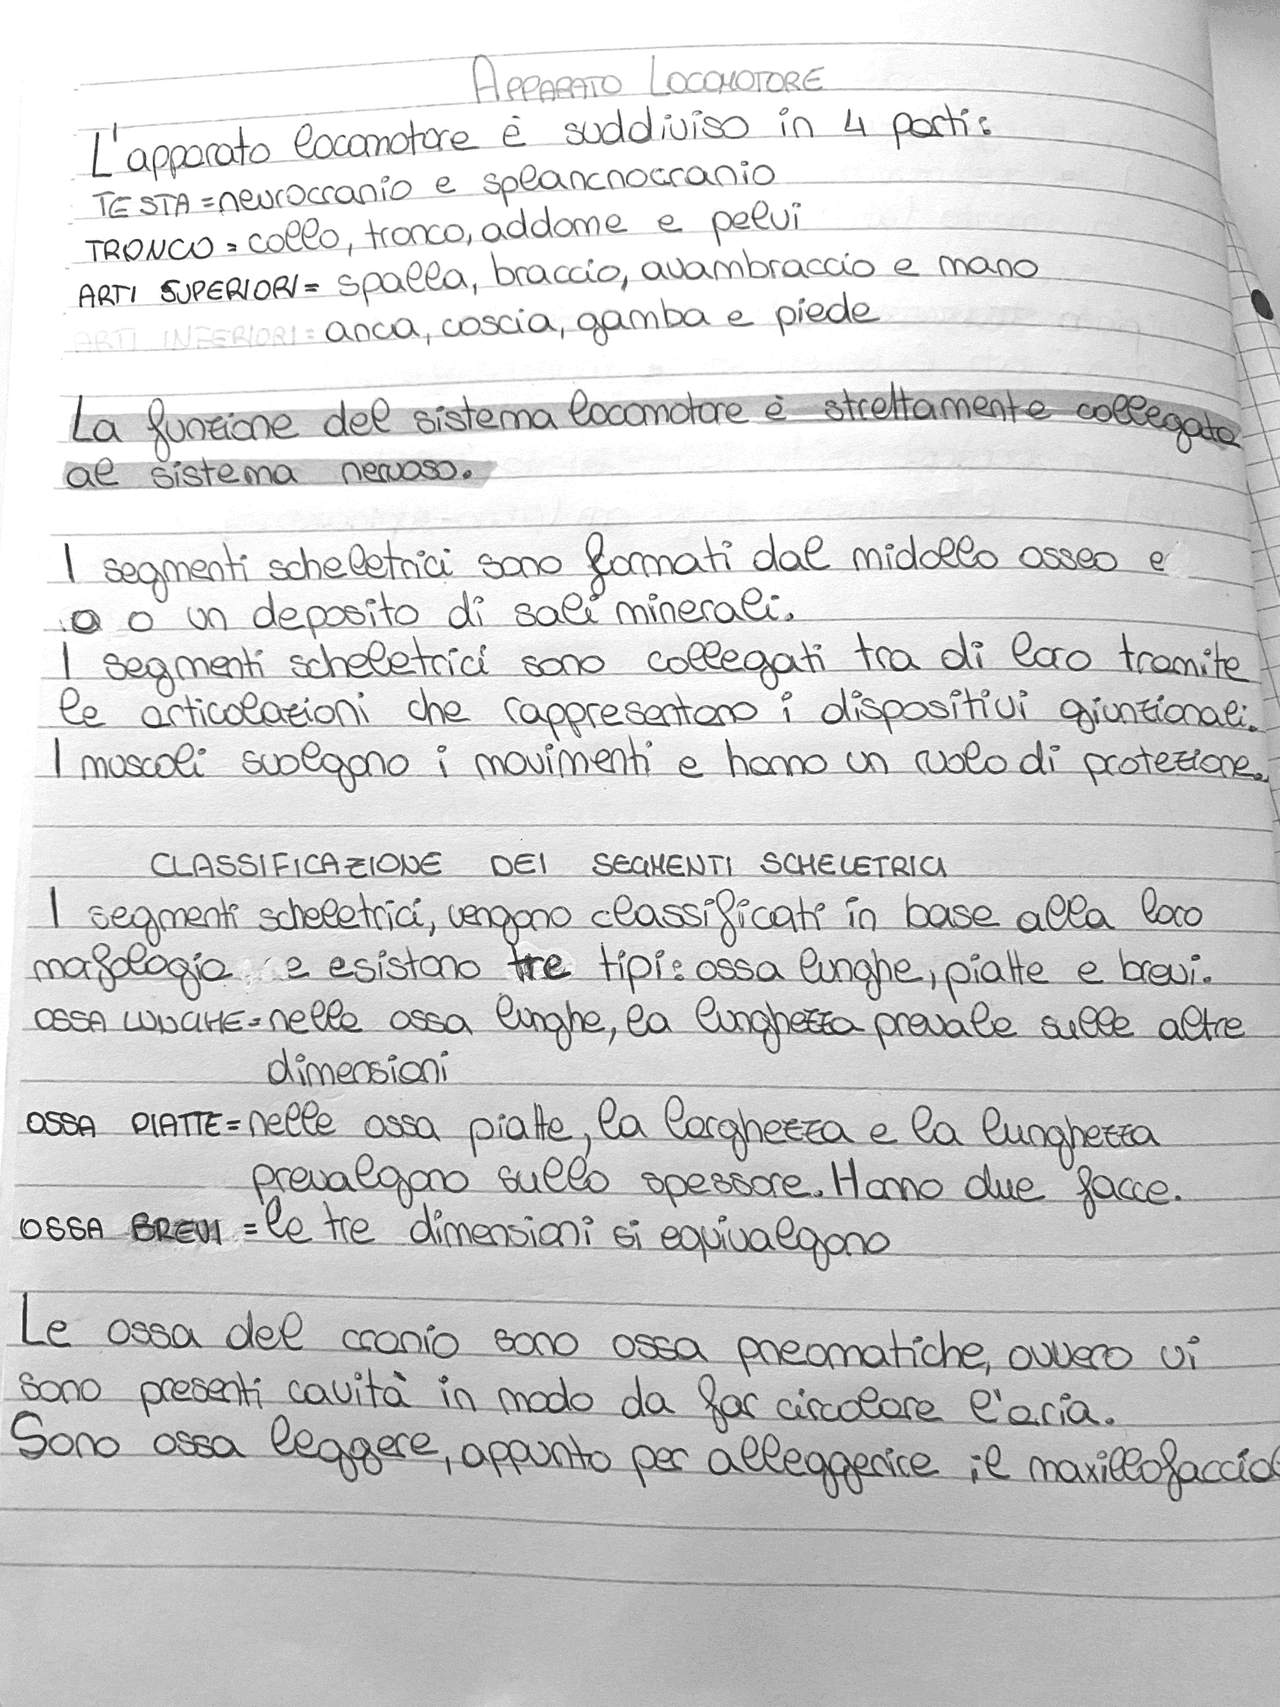 APPARATO LOCOMOTORE
L'apparato locomotore è suddiviso in 4 parti:
TESTA = neurocranio e spleancnocranio
TRONCO = collo, tronco, addome e pelvi
ARTI SUPERIORI = spalla, braccio, avambraccio e mano
ARTI INFERIORI = anca, coscia, gamba e piede
La funzione del sistema locomotore è strettamente collegata
al sistema nervoso.
I segmenti scheletrici sono formati dal midollo osseo e
a o un deposito di sali minerali.
I segmenti scheletrici sono collegati tra di loro tramite
le articolazioni che rappresentano i dispositivi giunzionali.
I muscoli svolgono i movimenti e hanno un ruolo di protezione.
CLASSIFICAZIONE DEI SEGMENTI SCHELETRICI
I segmenti scheletrici, vengono classificati in base alla loro
mafologia e esistono tre tipi: ossa lunghe, piatte e brevi.
OSSA LUNGHE = nelle ossa lunghe, la lunghezza prevale sulle altre
dimensioni
OSSA PIATTE = nelle ossa piatte, la larghezza e la lunghezza
prevalgono sullo spessore. Hanno due facce.
OSSA BREVI = le tre dimensioni si equivalgono
Le ossa del cranio sono ossa pneomatiche, ovvero vi
sono presenti cavità in modo da far circolare l'aria.
Sono ossa leggere, appunto per alleggerire il maxillofaccial